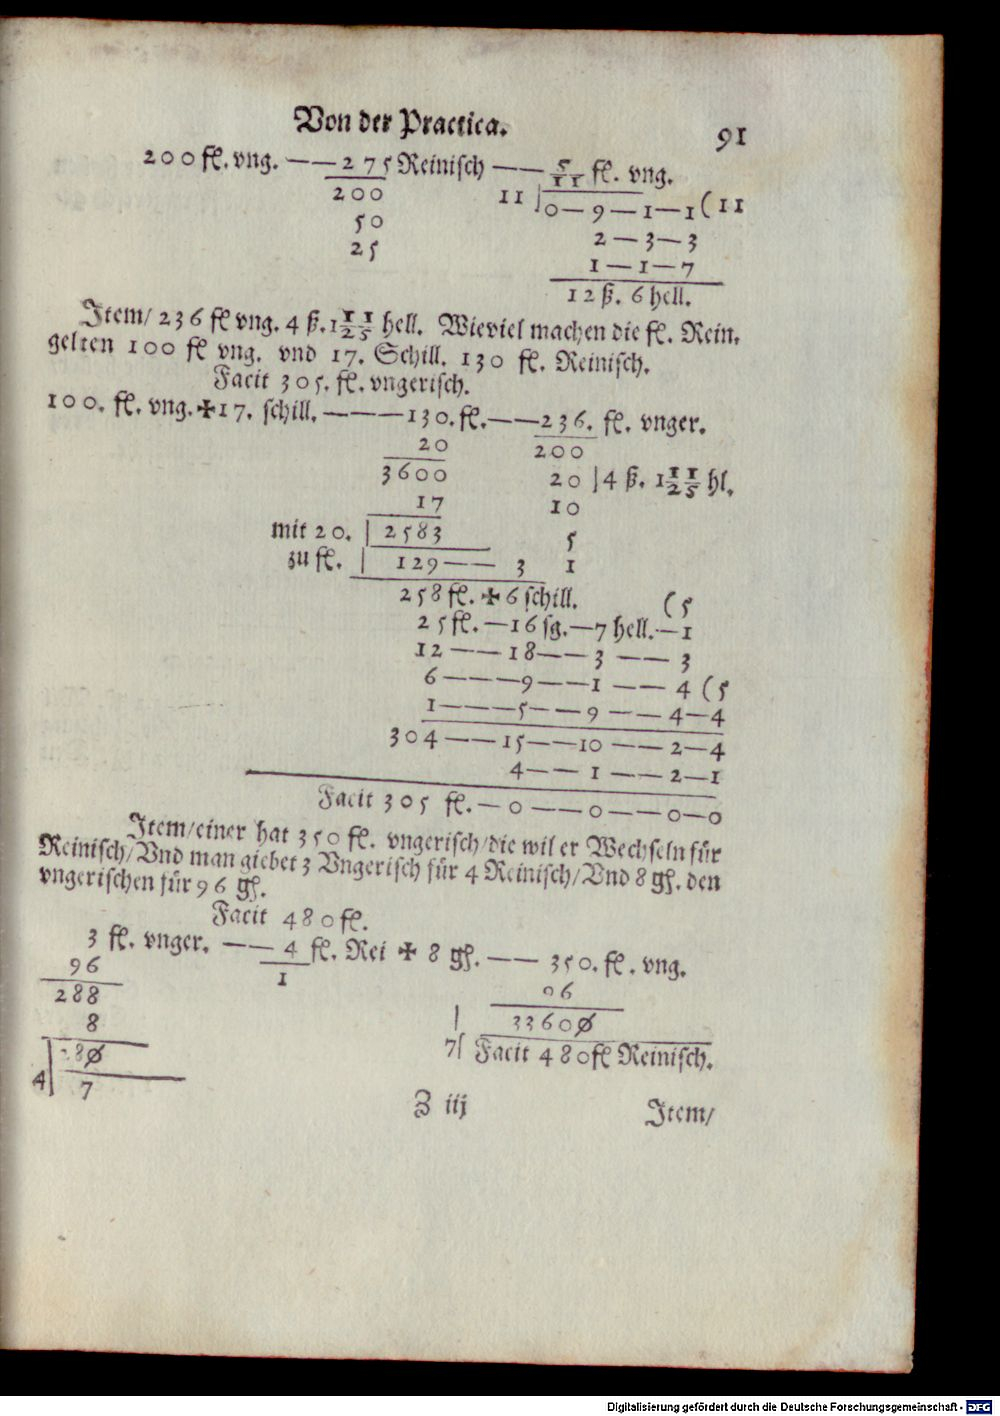 Von der Practica.
91
200 fl. vng. —— 275 Reinisch —— 5/11 fl. vng.
200 11 | 0 — 9 — 1 — 1 ( 11
50 2 — 3 — 3
25 1 — 1 — 7
12 ß. 6 hell.
Item/ 236 fl vng. 4 ß. 1 1/2 1/5 hell. Wieviel machen die fl. Rein.
gelten 100 fl vng. vnd 17. Schill. 130 fl. Reinisch.
Facit 305. fl. vngerisch.
100. fl. vng. ✠ 17. schill. ——— 130. fl. —— 236. fl. vnger.
20 200
3600 20 | 4 ß. 1 1/2 1/5 hl.
17 10
mit 20. | 2583 5
zu fl. | 129 —— 3 1
258 fl. ✠ 6 schill. ( 5
25 fl. — 16 sg. — 7 hell. — 1
12 —— 18 —— 3 —— 3
6 ——— 9 —— 1 —— 4 ( 5
1 ——— 5 —— 9 —— 4 — 4
304 —— 15 —— 10 —— 2 — 4
4 —— 1 —— 2 — 1
Facit 305 fl. — 0 —— 0 —— 0 — 0
Item/ einer hat 350 fl. vngerisch/ die wil er Wechseln für
Reinisch/ Vnd man giebet 3 Vngerisch für 4 Reinisch/ Vnd 8 gh. den
vngerischen für 96 gh.
Facit 480 fl.
3 fl. vnger. —— 4 fl. Rei ✠ 8 gh. —— 350. fl. vng.
96 1 96
288 33600
8 7 | Facit 480 fl Reinisch.
280
4 | 7
Z iij
Item/
Digitalisierung gefördert durch die Deutsche Forschungsgemeinschaft - DFG